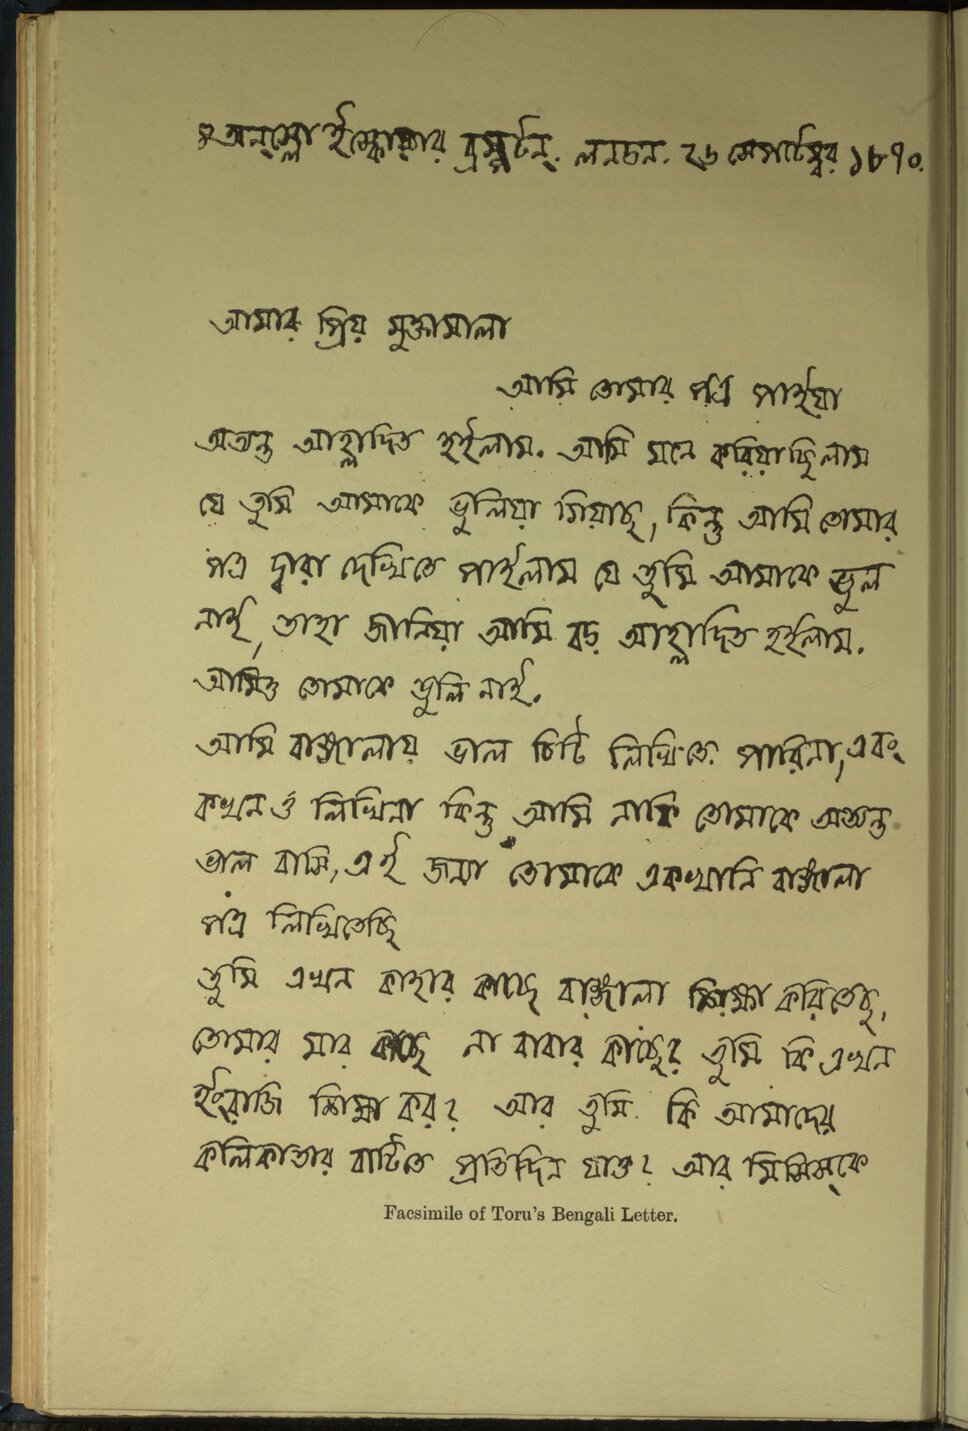 ৪ অনস্লো ইস্কোয়ার ব্রম্পটন্. লনডন. ২৬ সেপটেম্বর ১৮৭০.
আমার প্রিয় মুক্তামালা
আমি তোমার পত্র পাইয়া
অত্যন্ত আহ্লাদিত হইলাম. আমি মনে করিয়াছিলাম
যে তুমি আমাকে ভুলিয়া গিয়াছ, কিন্তু আমি তোমার
পত্র দ্বারা দেখিতে পাইলাম যে তুমি আমাকে ভুল
নাই, তাহা জানিয়া আমি বড় আহ্লাদিত হইলাম.
আমিও তোমাকে ভুলি নাই.
আমি বাঙ্গালায় ভাল চিটি লিখিতে পারিনা, এবং
কখনও লিখিনা কিন্তু আমি নাকি তোমাকে অত্যন্ত
ভাল বাসি, এই জন্য তোমাকে একখানি বাঙ্গালা
পত্র লিখিতেছি
তুমি এখন কাহার কাছে বাঙ্গালা শিক্ষা করিতেছ,
তোমার মার কাছে না বাবার কাছে? তুমি কি এখন
ইংরাজি শিক্ষা কর? আর তুমি কি আমাদের
কলিকাতার বাটিতে প্রতিদিন যাও? আর মিমিমকে
Facsimile of Toru's Bengali Letter.